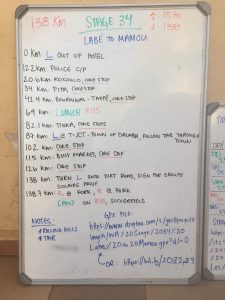 138 KM STAGE 34 ↑ 1570
↓ 1370
LABE TO MAMOU
0 KM: L OUT OF HOTEL
12.2 KM: POLICE C/P
20.6 KM: KOKOULO, COKE STOP
34 KM: PITA, COKE STOP
42.4 KM: COKE STOP
69 KM: LUNCH RHS
82.1 KM: TINKA, COKE STOPS
87 KM: L @ T-JCT - TOWN OF DALABA, FOLLOW TAR THROUGH TOWN
102 KM: COKE STOP
115 KM: BULT MARKET, COKE STOP
126 KM: COKE STOP
138 KM: TURN L ONTO DIRT ROAD, SIGN FOR GROUPE SCOLAIRE
138.7 KM: R @ FORK, R @ FORK
CAMP ON RHS, SOCCERFIELD
NOTES:
* ROLLING HILLS
* TAR
GPX FILE:
https://www.dropbox.com/s/
Labe%20to%20Mamou.gpx?dl=0
OR: https://bit.ly/